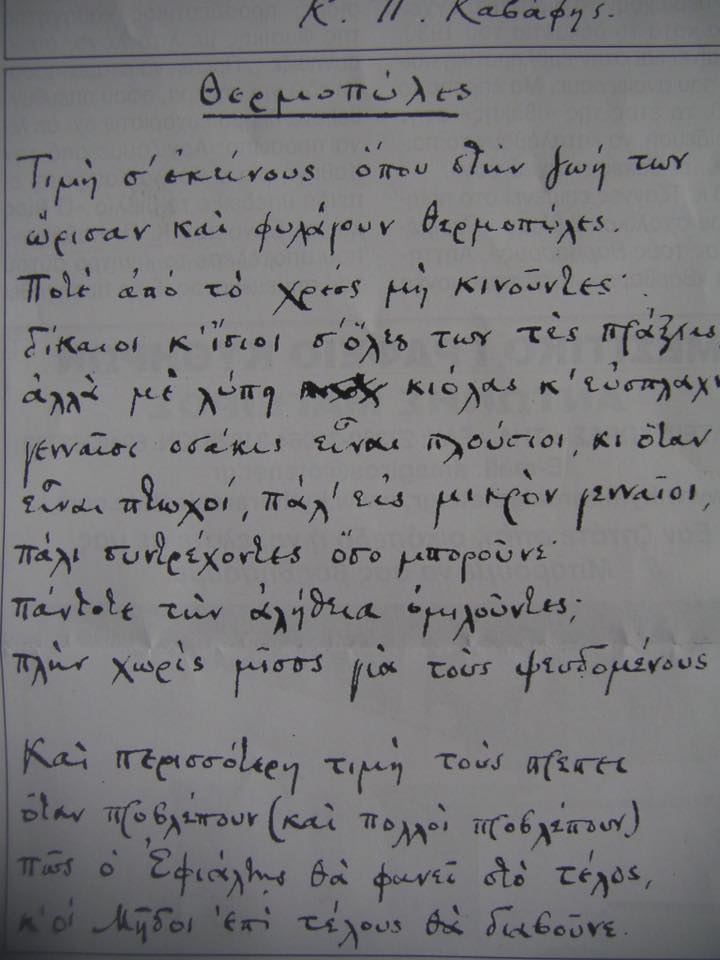 Κ. Π. Καβάφης.
Θερμοπύλες
Τιμὴ σ' ἐκείνους ὅπου στὴν ζωή των
ὥρισαν καὶ φυλάγουν Θερμοπύλες.
Ποτὲ ἀπὸ τὸ χρέος μὴ κινοῦντες·
δίκαιοι κ' ἴσιοι σ' ὅλες των τὲς πράξεις,
ἀλλὰ μὲ λύπη κιόλας κ' εὐσπλαχν
γενναῖοι οσάκις εἶναι πλούσιοι, κι ὅταν
εἶναι πτωχοί, πάλ' εἰς μικρὸν γενναῖοι,
πάλι συντρέχοντες ὅσο μποροῦνε·
πάντοτε τὴν ἀλήθεια ὁμιλοῦντες,
πλὴν χωρὶς μῖσος γιὰ τοὺς ψευδομένους
Καὶ περισσότερη τιμὴ τοὺς πρέπει
ὅταν προβλέπουν (καὶ πολλοὶ προβλέπουν)
πῶς ὁ Ἐφιάλτης θὰ φανεῖ στὸ τέλος,
κ' οἱ Μῆδοι ἐπὶ τέλους θὰ διαβοῦνε.